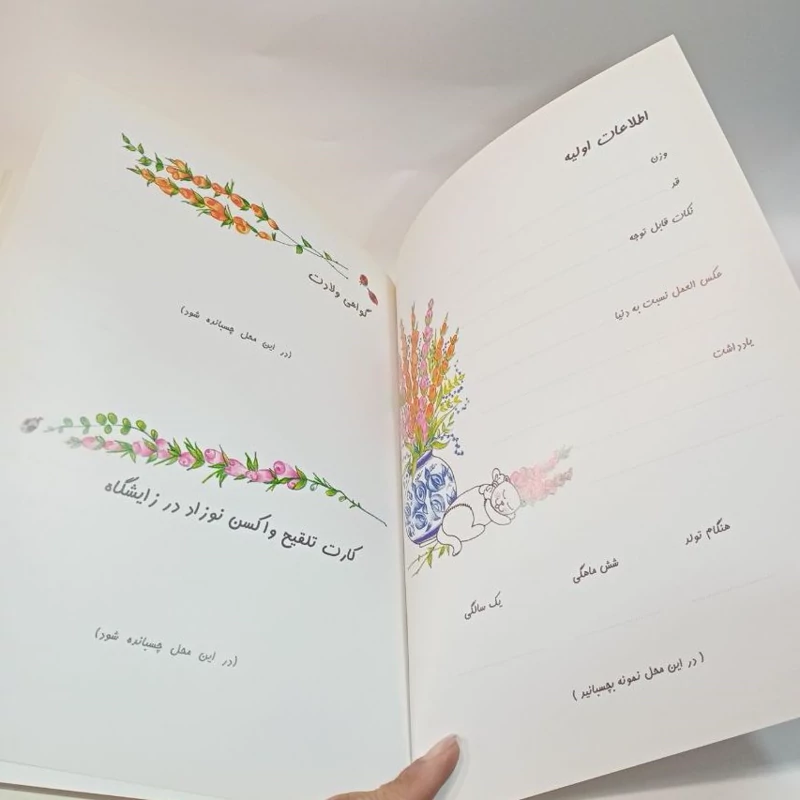 اطلاعات اولیه
وزن
قد
نکات قابل توجه
عکس العمل نسبت به دنیا
یادداشت
هنگام تولد
شش ماهگی
یک سالگی
( در این محل نمونه بچسبانید )
گواهی ولادت
(در این محل چسبانده شود)
کارت تلقیح واکسن نوزاد در زایشگاه
(در این محل چسبانده شود)